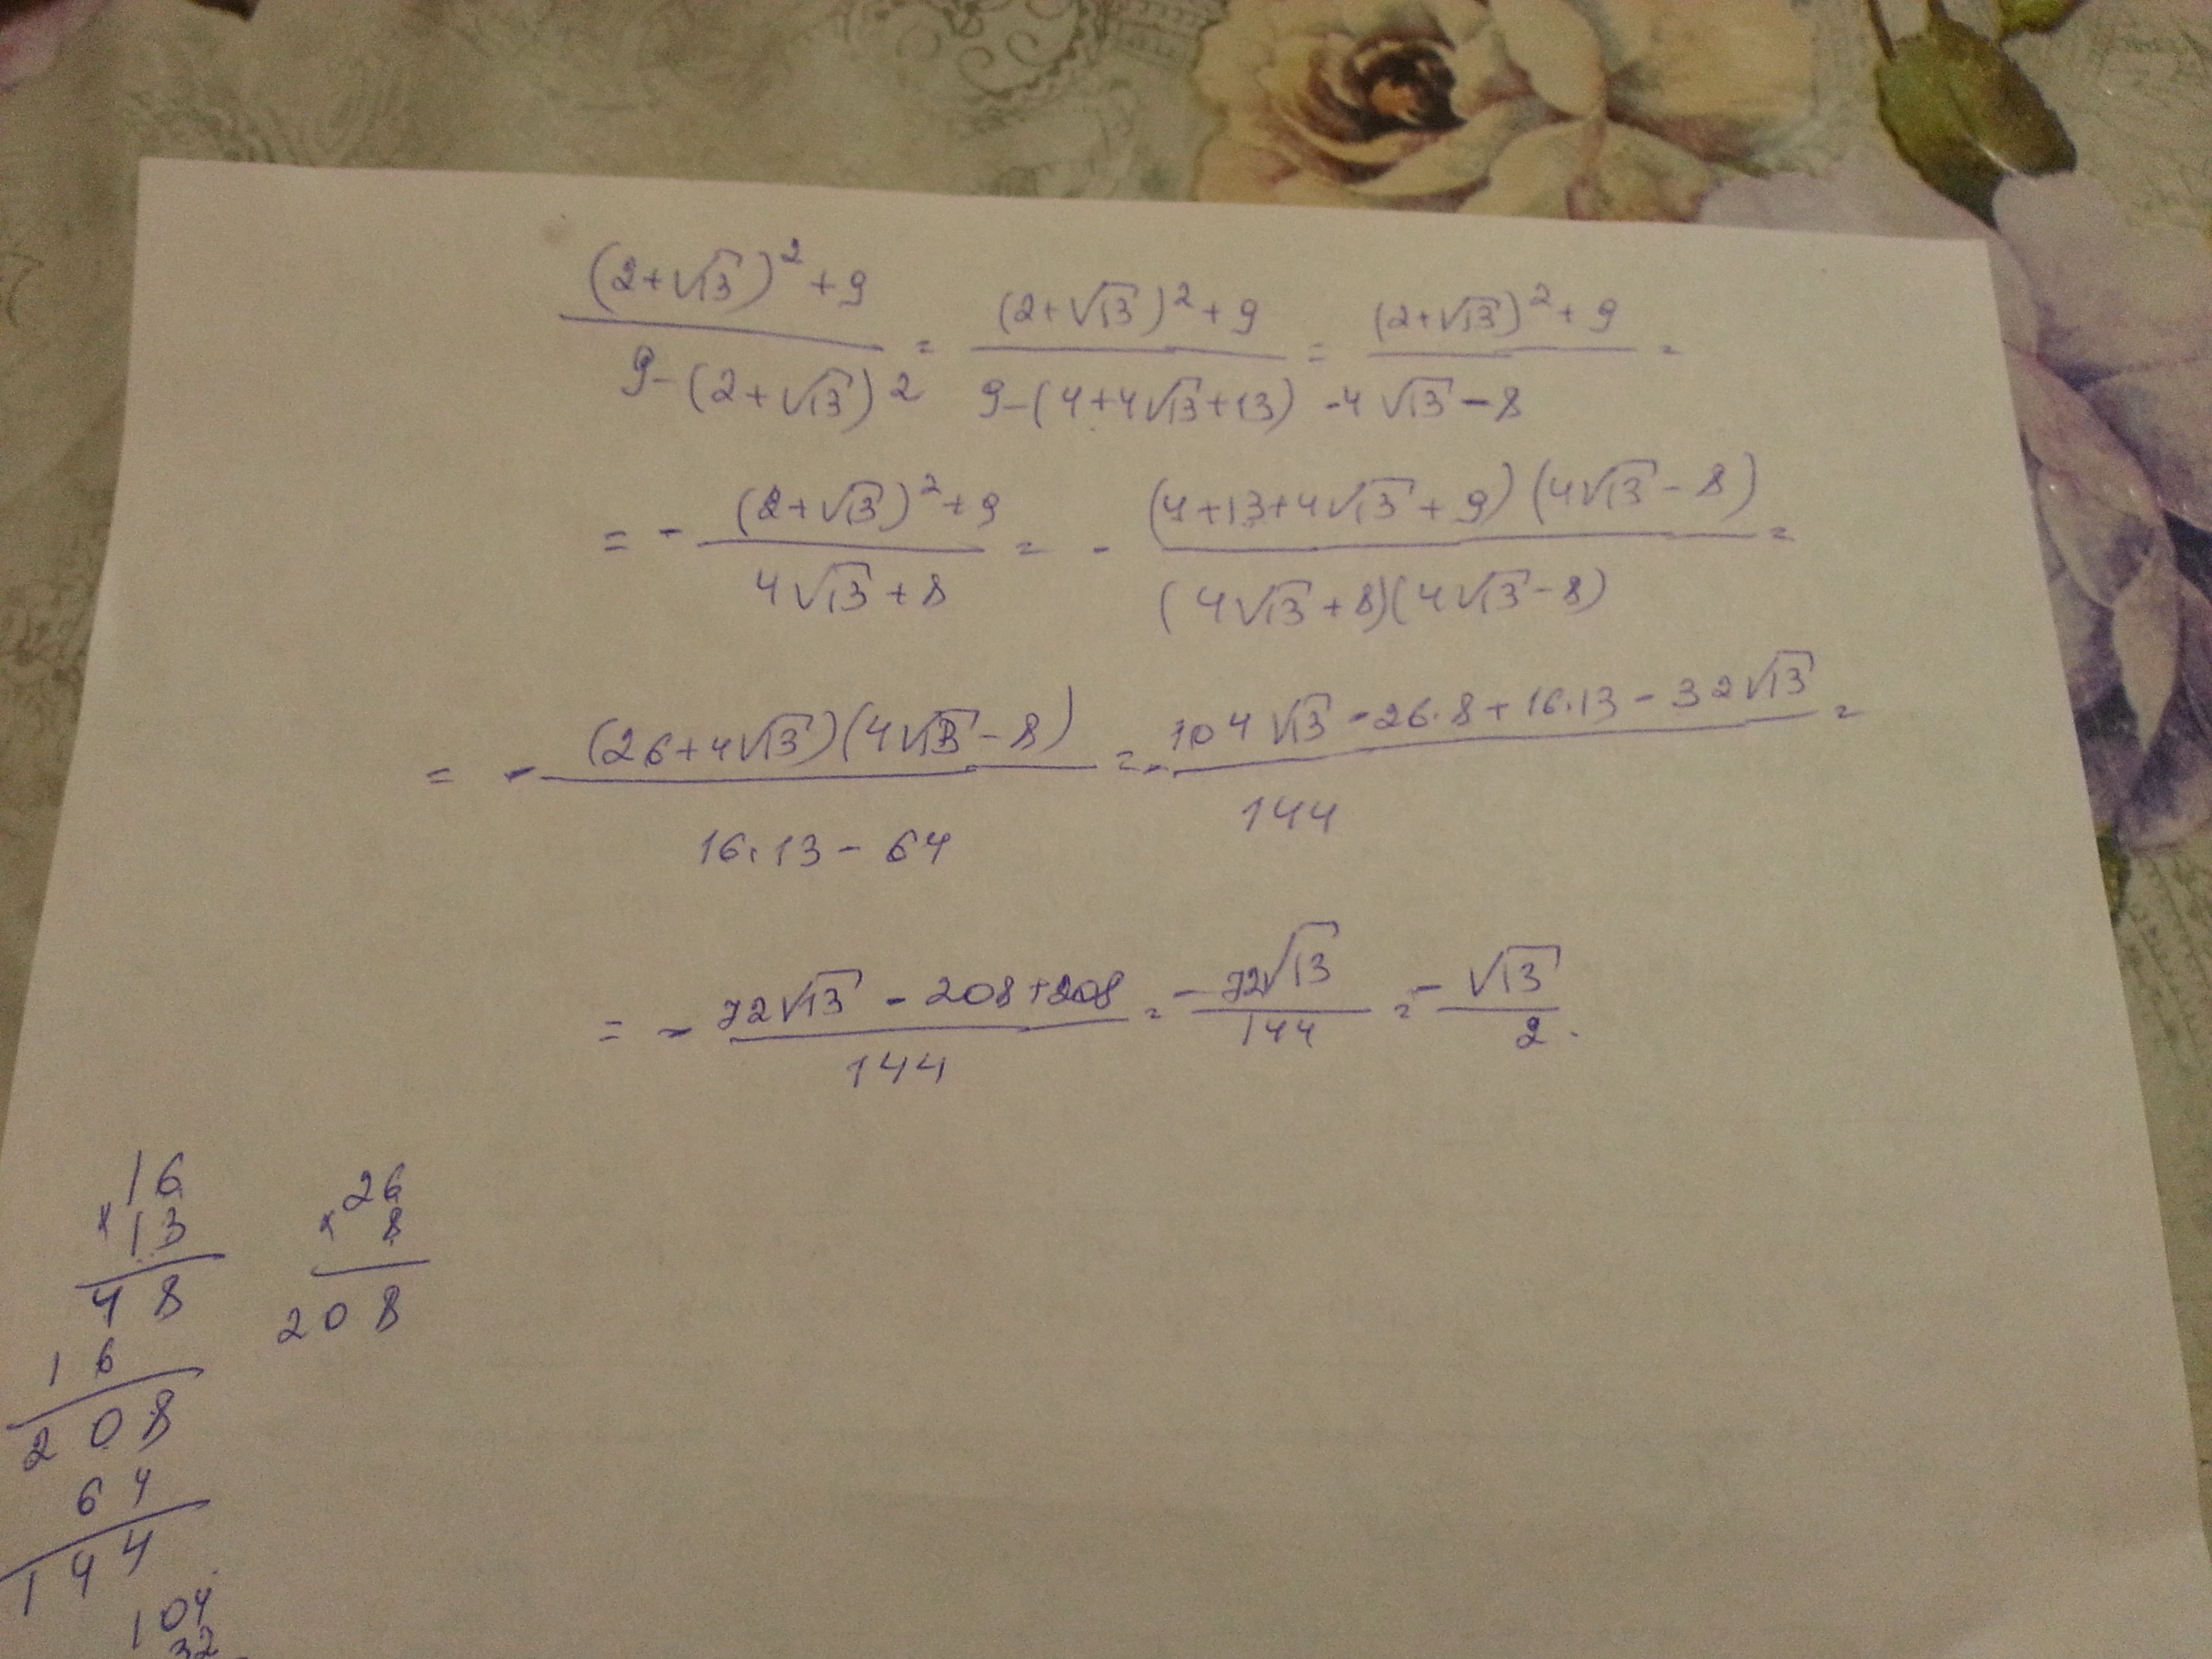 ((2+√13)²+9)/(9-(2+√13)2) = ((2+√13)²+9)/(9-(4+4√13+13)) = ((2+√13)²+9)/(-4√13-8) =
= -((2+√13)²+9)/(4√13+8) = -((4+13+4√13+9)(4√13-8))/((4√13+8)(4√13-8)) =
= -((26+4√13)(4√13-8))/(16·13-64) = -(104√13-26·8+16·13-32√13)/144 =
= -(72√13-208+208)/144 = -72√13/144 = -√13/2.
16
×13
48
16
208
64
144
104
32
26
×8
208